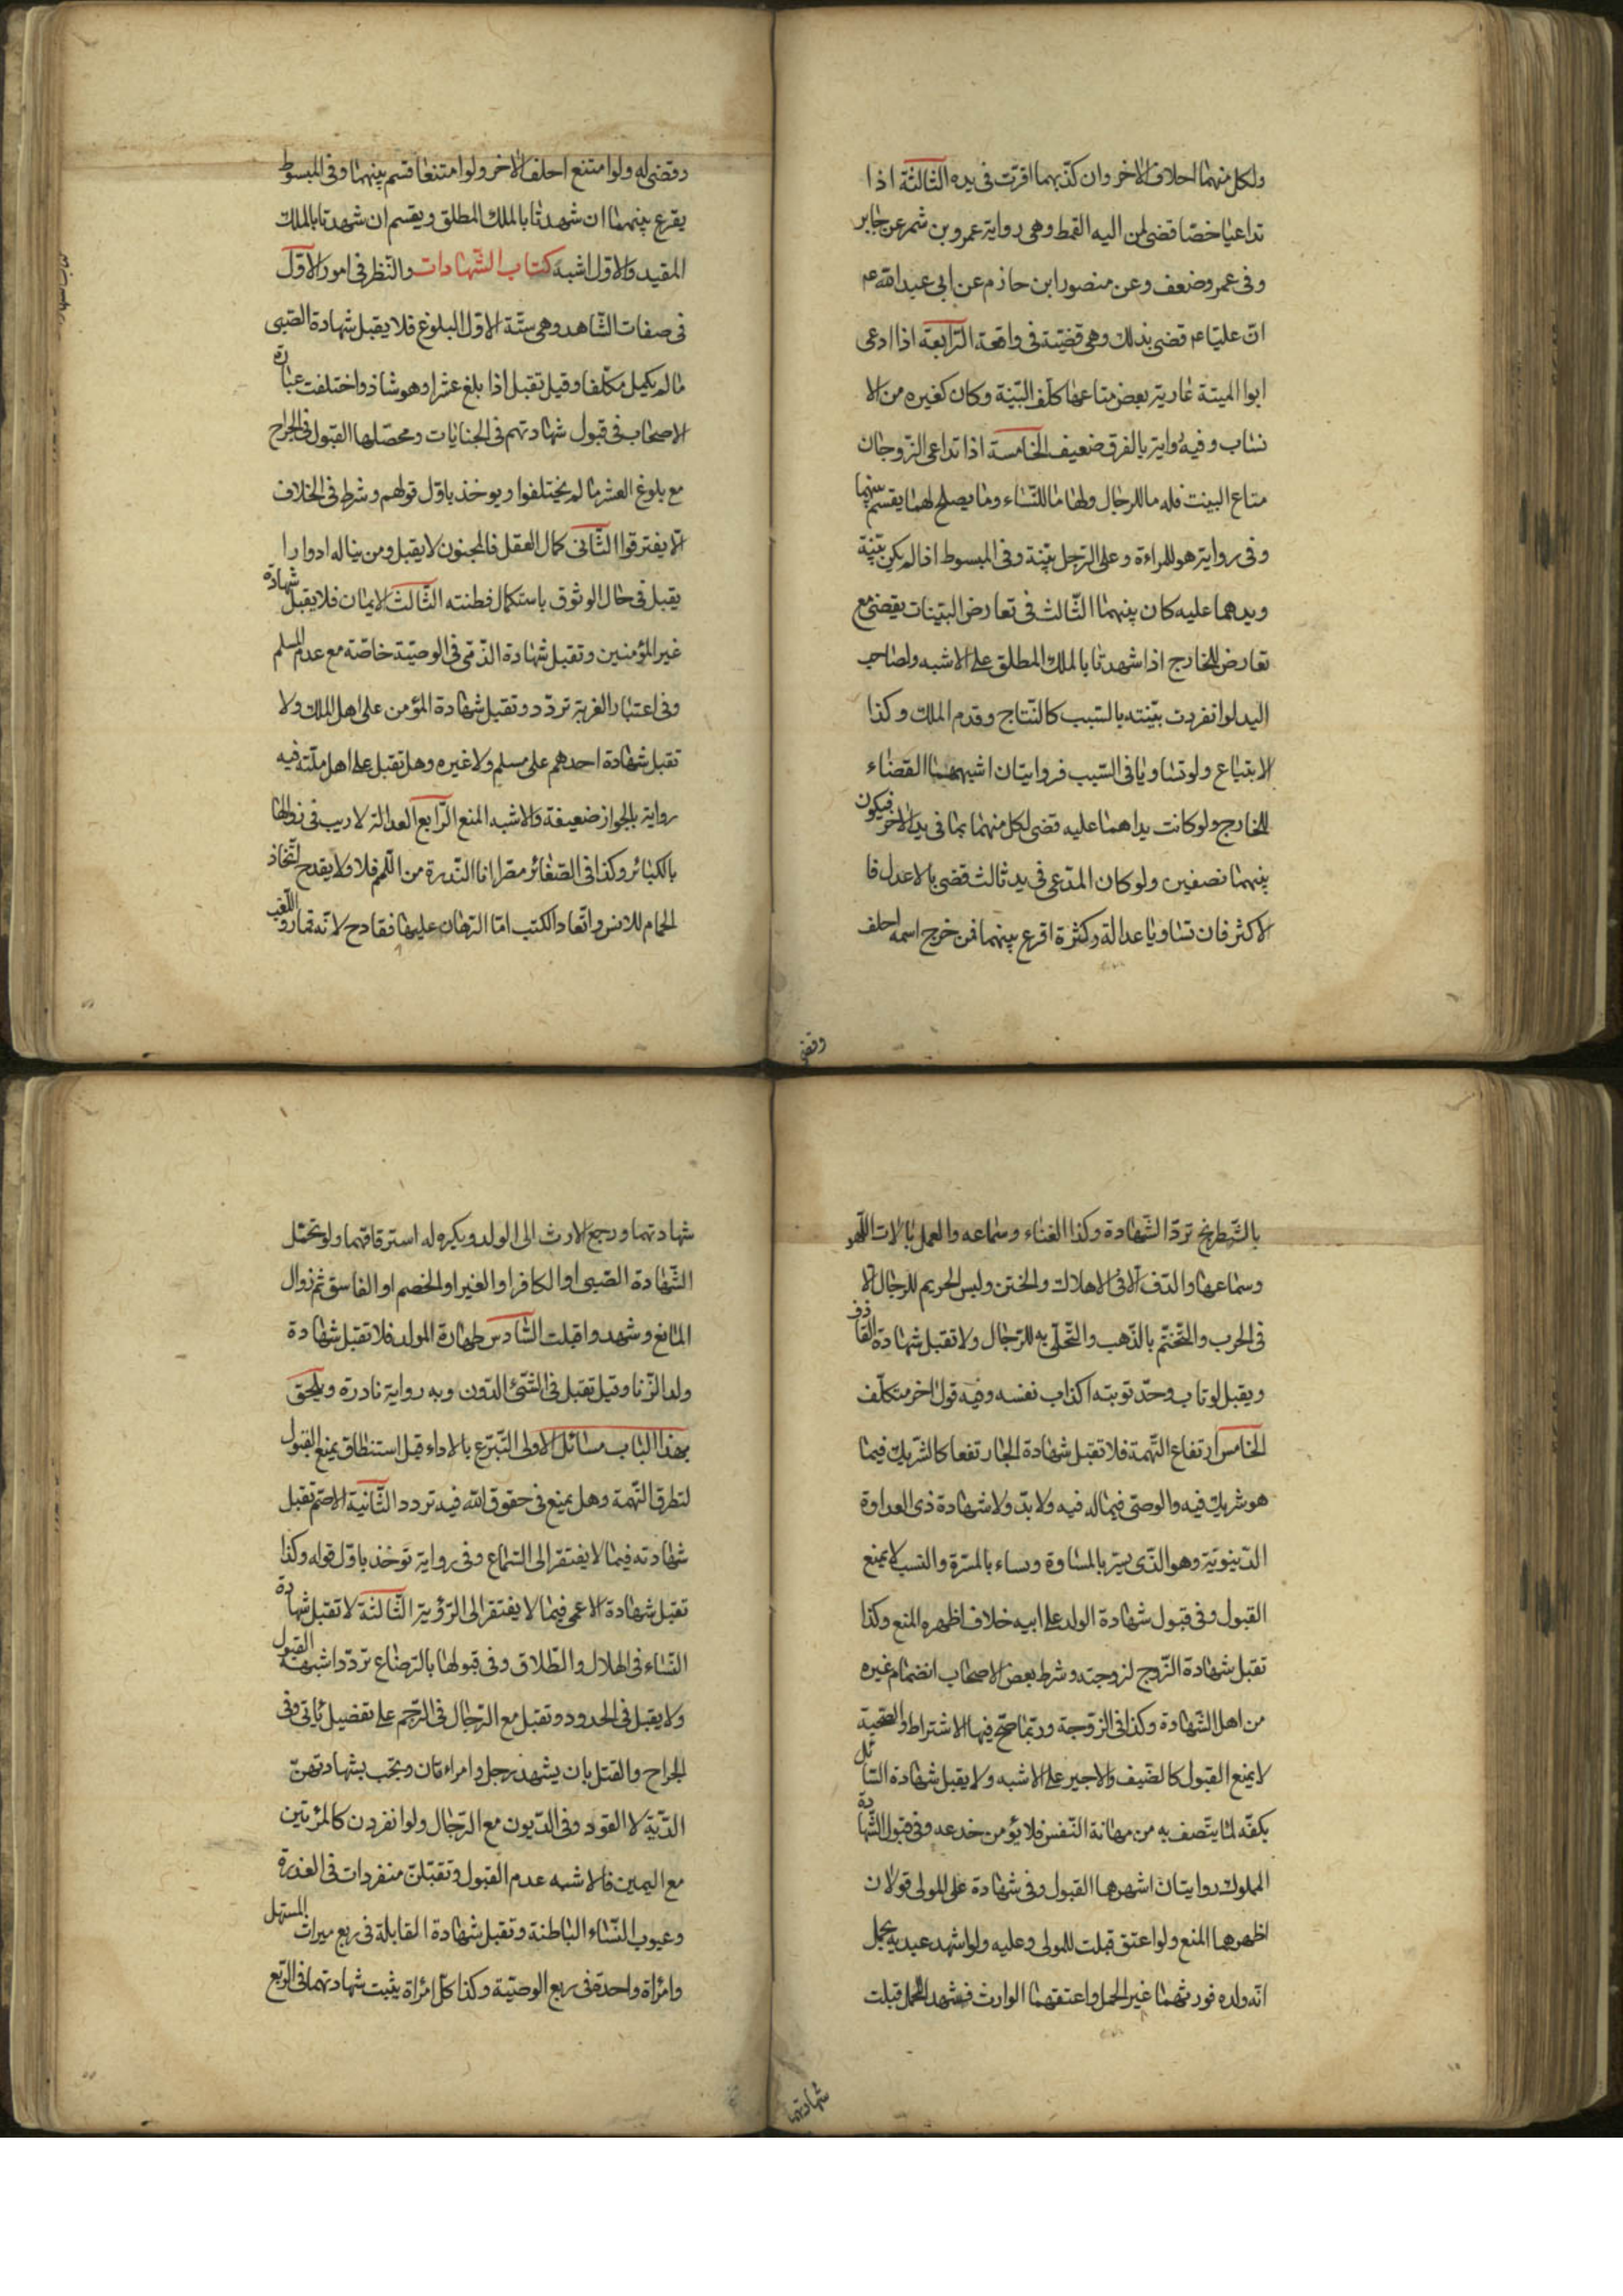 ولكل منهما احلاف الاخر وان كذّبهما اقرّت فى يده الثّالثة اذا
تداعيا خصّا قضى لمن اليه القمط وهى رواية عمرو بن شمر عن جابر
وفى عمرو ضعف وعن منصور ابن حازم عن ابى عبد الله عم
انّ عليّا عم قضى بذلك وهى قضيّة فى واقعة الرّابعة اذا ادعى
ابوا الميتة عارية بعض متاعها كلّف البيّنة وكان كغيره من الا
نساب وفيه رواية بالفرق ضعيف الخامسة اذا تداعى الزّوجان
متاع البيت فله ما للرجال ولها ما للنّساء وما يصلح لهما يقسم بينهما
وفى رواية هو للمراءة وعلى الرّجل بيّنة وفى المبسوط اذا لم يكن بيّنة
ويدهما عليه كان بينهما الثّالث فى تعارض البيّنات يقضى مع
تعارض للخارج اذا شهدتا بالملك المطلق على الاشبه ولصاحب
اليد لو انفردت بيّنته بالسّبب كالنّتاج وقدم الملك وكذا
الابتياع ولو تساويا فى السّبب فروايتان اشبههما القضاء
للخارج ولو كانت يداهما عليه قضى لكل منهما بما فى يد الاخر فيكون
بينهما نصفين ولو كان المدّعى فى يد ثالث قضى بالاعدل فا
لاكثر فان تساويا عدالة وكثرة اقرع بينهما فمن خرج اسمه احلف
وقضى
وقضى له ولو امتنع احلف الاخر ولو امتنعا قسم بينهما وفى المبسوط
يقرع بينهما ان شهدتا بالملك المطلق ويقسم ان شهدتا بالملك
المقيد والاول اشبه كتاب الشّهادات والنّظر فى امور الاوّل
فى صفات الشّاهد وهى ستّة الاوّل البلوغ فلا يقبل شهادة الصّبى
ما لم يكمل مكلّفا وقيل تقبل اذا بلغ عشرا وهو شاذ واختلفت عبارة
الاصحاب فى قبول شهادتهم فى الجنايات ومحصّلها القبول فى الجراح
مع بلوغ العشر ما لم يختلفوا ويوخذ باوّل قولهم وشرط فى الخلاف
الّا يفترقوا الثّانى كمال العقل فالمجنون لا يقبل ومن يناله ادوارا
يقبل فى حال الوثوق باستكمال فطنته الثّالث الايمان فلا يقبل شهادة
غير المؤمنين وتقبل شهادة الذّمّى فى الوصيّة خاصّة مع عدم المسلم
وفى اعتبار الغربة تردّد وتقبل شهادة المؤمن على اهل الملل ولا
تقبل شهادة احدهم على مسلم ولا غيره وهل تقبل على اهل ملّته فيه
رواية بالجواز ضعيفة والاشبه المنع الرّابع العدالة لا ريب فى زوالها
بالكبائر وكذا فى الصّغائر مصّرا اما النّدرة من اللّمم فلا ولا يقدح اتّخاذ
الحمام للانس وانفاد الكتب امّا الرّهان عليها فقادح لانّه قمار واللّعب
بالشّطرنج تردّ الشّهادة وكذا الغناء وسماعه والعمل بالات اللّهو
وسماعها والدّف الّا فى الاملاك والختن ولبس الحرير للرجال الّا
فى الحرب والتّختّم بالذّهب والتّحلّى به للرّجال ولا تقبل شهادة القاذف
ويقبل لو تاب وحدّ توبته اكذاب نفسه وفيه قول اخر متكلّف
الخامس ارتفاع التّهمة فلا تقبل شهادة الجار نفعا كالشريك فيما
هو شريك فيه والوصىّ فيما له فيه ولاية ولا شهادة ذى العداوة
الدّنيويّة وهو الذّى يسرّ بالمساوة ويساء بالمسرّة والنسب لا يمنع
القبول وفى قبول شهادة الولد على ابيه خلاف اظهره المنع وكذا
تقبل شهادة الزّوج لزوجته وشرط بعض الاصحاب انضمام غيره
من اهل الشّهادة وكذا فى الزّوجة وربّما صحّ فيها الاشتراط والصّحبة
لا يمنع القبول كالضيف والاجير على الاشبه ولا يقبل شهادة السّائل
بكفّه لما يتّصف به من مهانة النّفس فلا يؤمن خدعه وفى قبول الشّهادة
المملوك روايتان اشهرهما القبول وفى شهادة على المولى قولان
اظهرهما المنع ولو اعتق قبلت للمولى وعليه ولو اشهد عبديه بحمل
انّه ولده فورثهما غير الحمل واعتقهما الوارث فشهد للحمل قبلت
شهادتهما
شهادتهما ورجع الارث الى الولد ويكره له استرقاقهما ولو تحمّل
الشّهادة الصّبى او الكافر او العبد او الخصم او الفاسق ثم زوال
المانع وشهدوا قبلت السّادس طهارة المولد فلا تقبل شهادة
ولد الزّنا وقيل تقبل فى الشّئ الدّون وبه رواية نادرة ويلحق
بهذا الباب مسائل الاولى التّبرّع بالاداء قبل استنطاق يمنع القبول
لتطرق التّهمة وهل يمنع فى حقوق الله فيه تردد الثّانية الاصّم تقبل
شهادته فيما لا يفتقر الى السّماع وفى رواية توخذ باوّل قوله وكذا
تقبل شهادة الاعمى فيما لا يفتقر الى الرّؤية الثّالثة لا تقبل شهادة
النّساء فى الهلال والطّلاق وفى قبولها بالرّضاع تردّد اشبهه القبول
ولا يقبل فى الحدود وتقبل مع الرّجال فى الرّجم على تفضيل ياتى وفى
الجراح والقتل بان يشهد رجل وامراءتان ويجب بشهادتهنّ
الدّيّة لا القود وفى الدّيون مع الرّجال ولو انفردن كالمرئتين
مع اليمين فالاشبه عدم القبول وتقبلن منفردات فى العذرة
وعيوب النّساء الباطنة وتقبل شهادة القابلة فى ربع ميراث المستهل
وامرأة واحدة فى ربع الوصيّة وكذا كلّ امرأة يثبت شهادتهما فى الرّبع